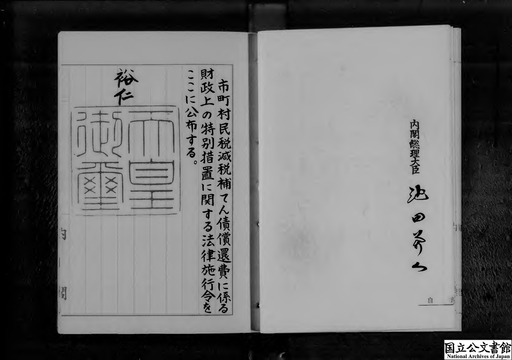 市町村民税減税補てん債償還費に係る
財政上の特別措置に関する法律施行令を
ここに公布する。
裕仁
天皇
御璽
内閣総理大臣 池田勇人
内閣
国立公文書館
National Archives of Japan